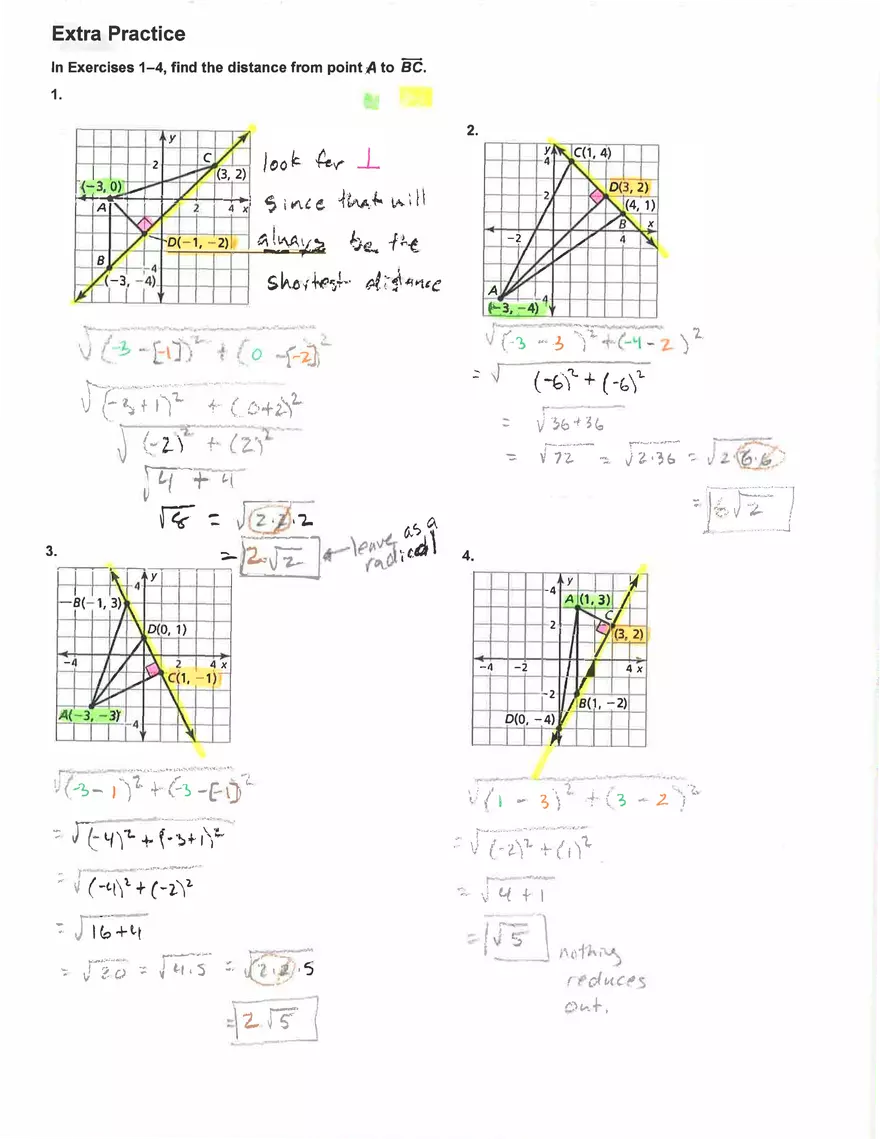 Extra Practice
In Exercises 1–4, find the distance from point A to BC.
1.
y
2
C
(3, 2)
(−3, 0)
A
2
4
x
D(−1, −2)
B
−4
(−3, −4)
look for ⊥
since that will
always be the
shortest distance
√(-3 - [-1])² + (0 - [-2])²
√(-3+1)² + (0+2)²
√(-2)² + (2)²
√4 + 4
√8 = √2·2·2
= 2√2 ← leave as a radical
2.
y
4
C(1, 4)
2
D(3, 2)
(4, 1)
B
x
−2
4
A
(−3, −4)
−4
√(-3 - 3)² + (-4 - 2)²
= √(-6)² + (-6)²
= √36+36
= √72 = √2·36 = √2·6·6
= 6√2
3.
y
4
B(−1, 3)
D(0, 1)
−4
2
4
x
C(1, −1)
A(−3, −3)
−4
√(-3 - 1)² + (-3 - [-1])²
= √(-4)² + (-3+1)²
= √(-4)² + (-2)²
= √16+4
= √20 = √4·5 = √2·2·5
= 2√5
4.
y
-4
A (1, 3)
C
2
(3, 2)
−4
−2
4 x
−2
B(1, −2)
D(0, −4)
√(1 - 3)² + (3 - 2)²
= √(-2)² + (1)²
= √4 + 1
= √5
nothing
reduces
out.